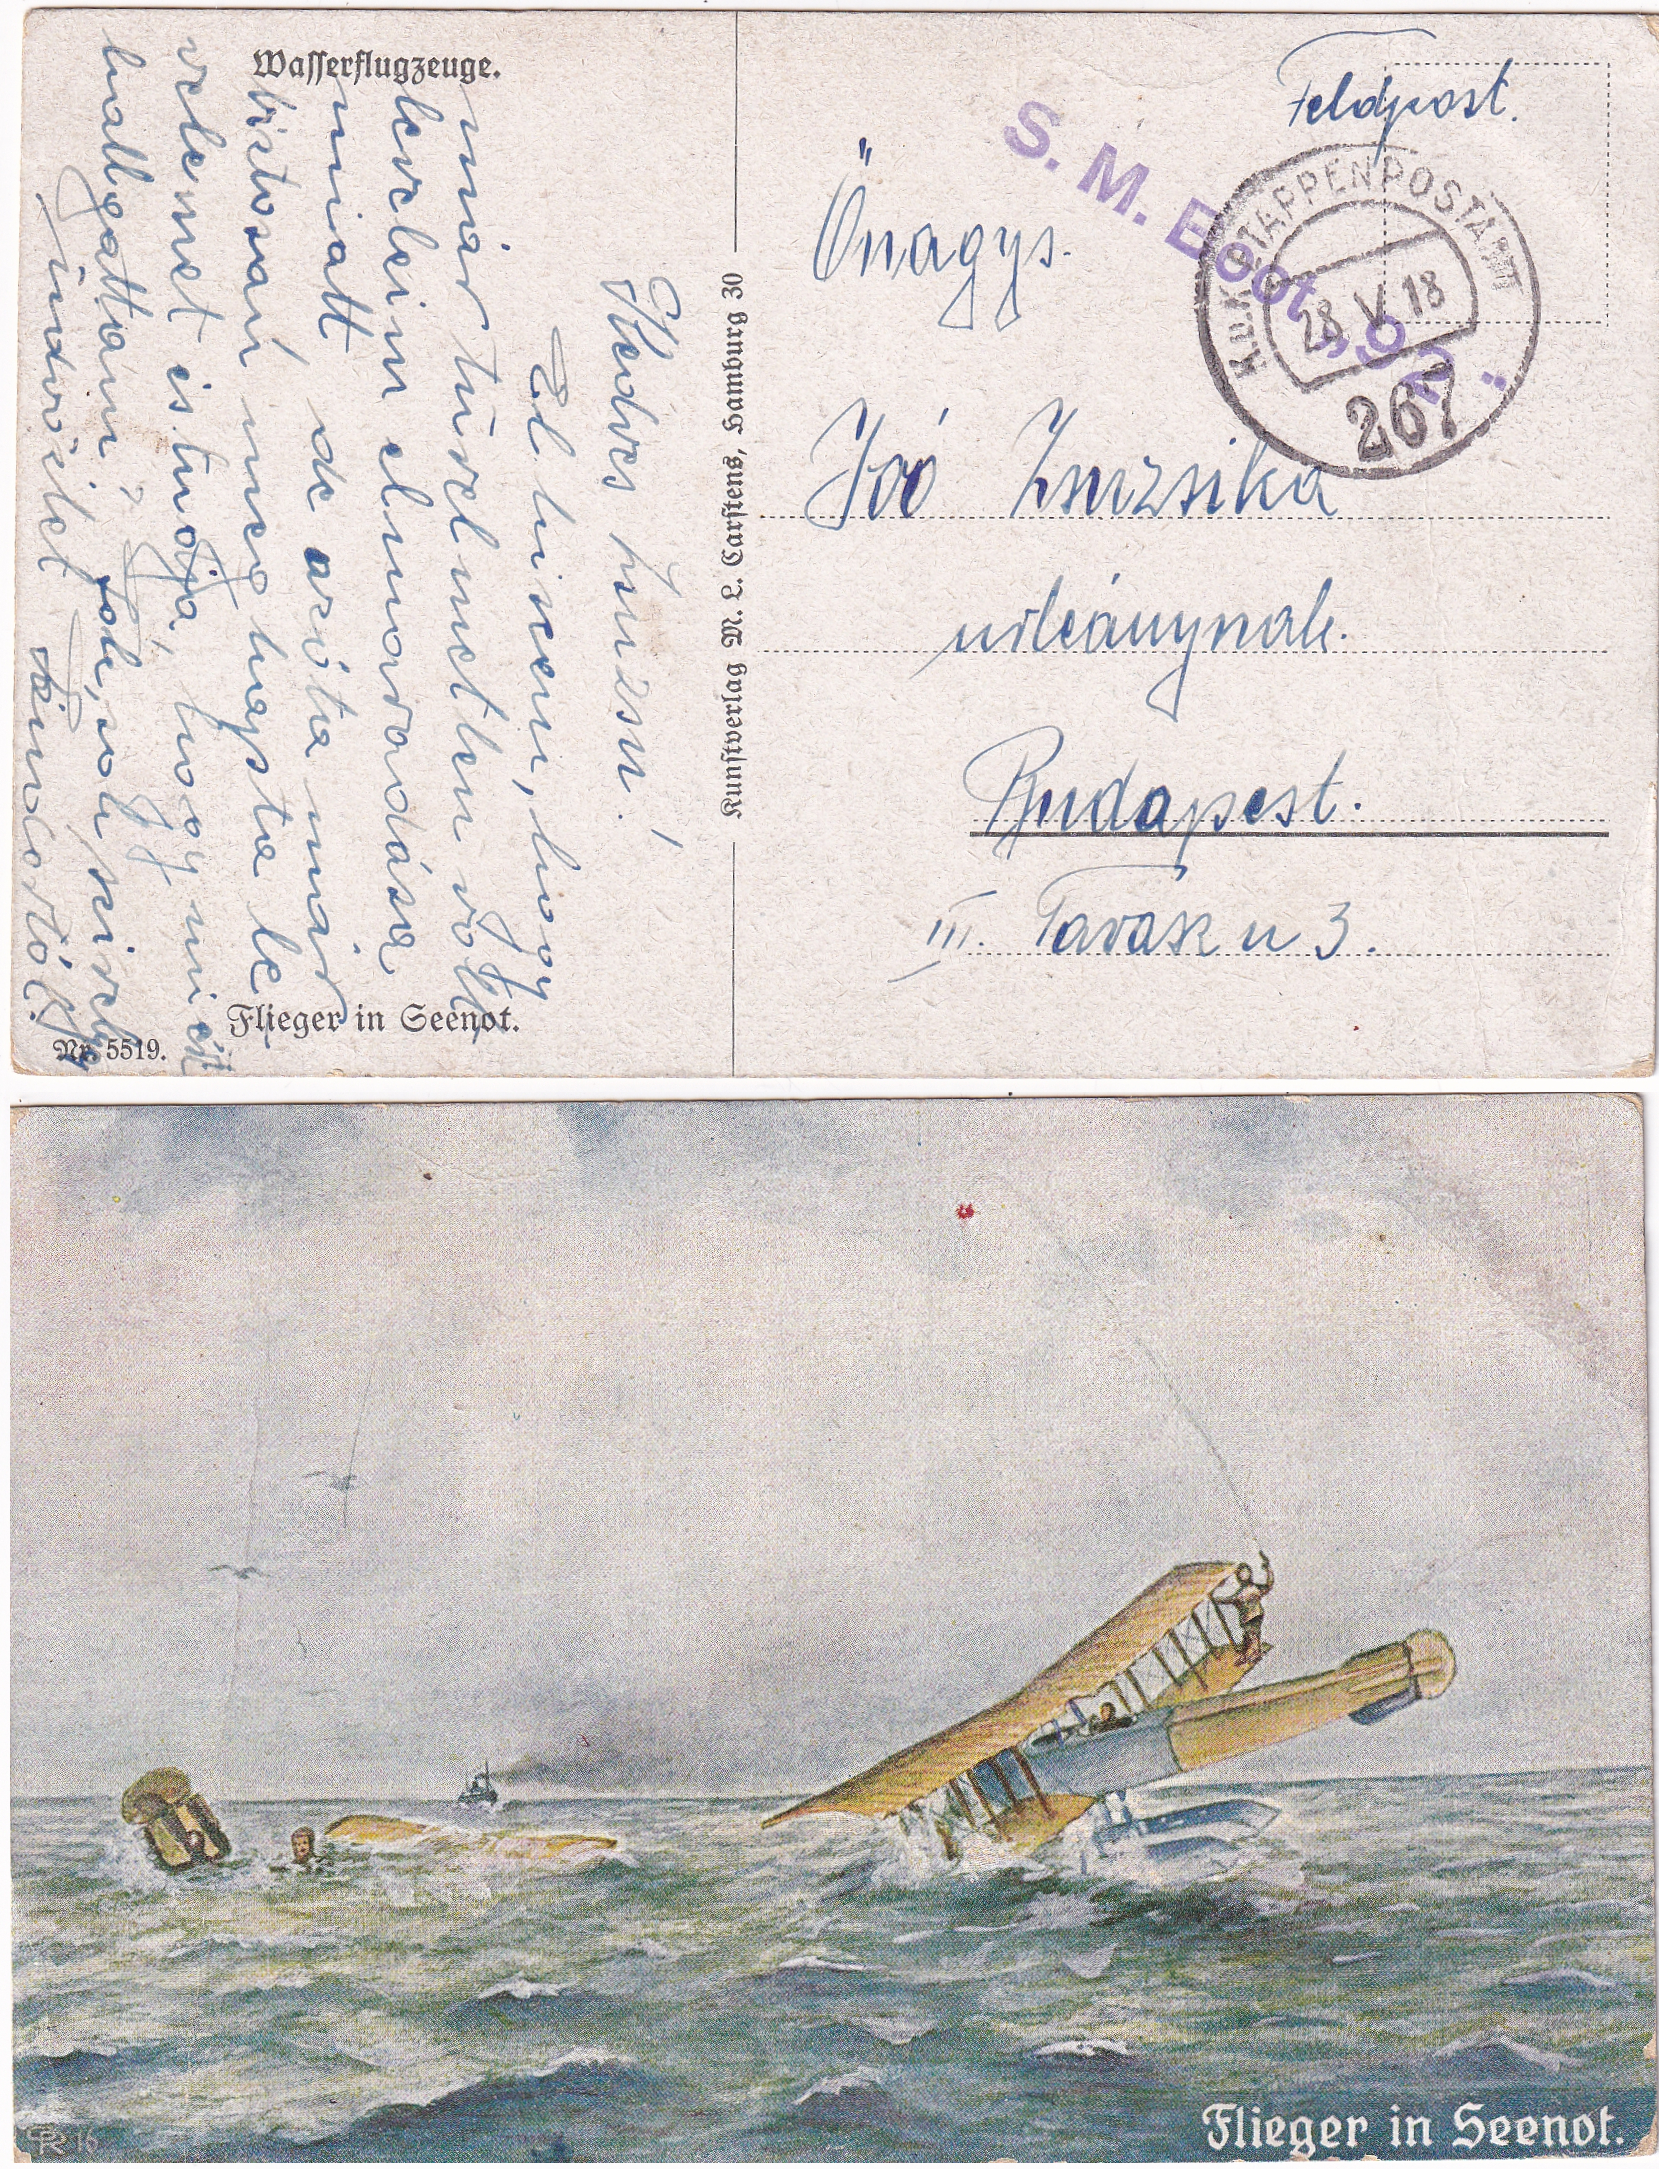 Wasserflugzeuge.
Kedves Zsuzsu!
El hiszem, hogy
már türelmetlen volt
levleim elmaradása
miatt de azóta már
bistosan megkapta le-
velemet is tudja, hogy miért
hallgattam? Sok, sok szívélyes
üdvözlet
Flieger in Seenot.
Nr. 5519.
Kunstverlag M. L. Carstens, Hamburg 30
Feldpost.
S. M. Boot
K.u.K. ETAPPENPOSTAMT
28 V 18
267
Önagys.
Joó Zsuzsika
urleánynak.
Budapest.
III. Tavasz u 3.
CPR 16
Flieger in Seenot.